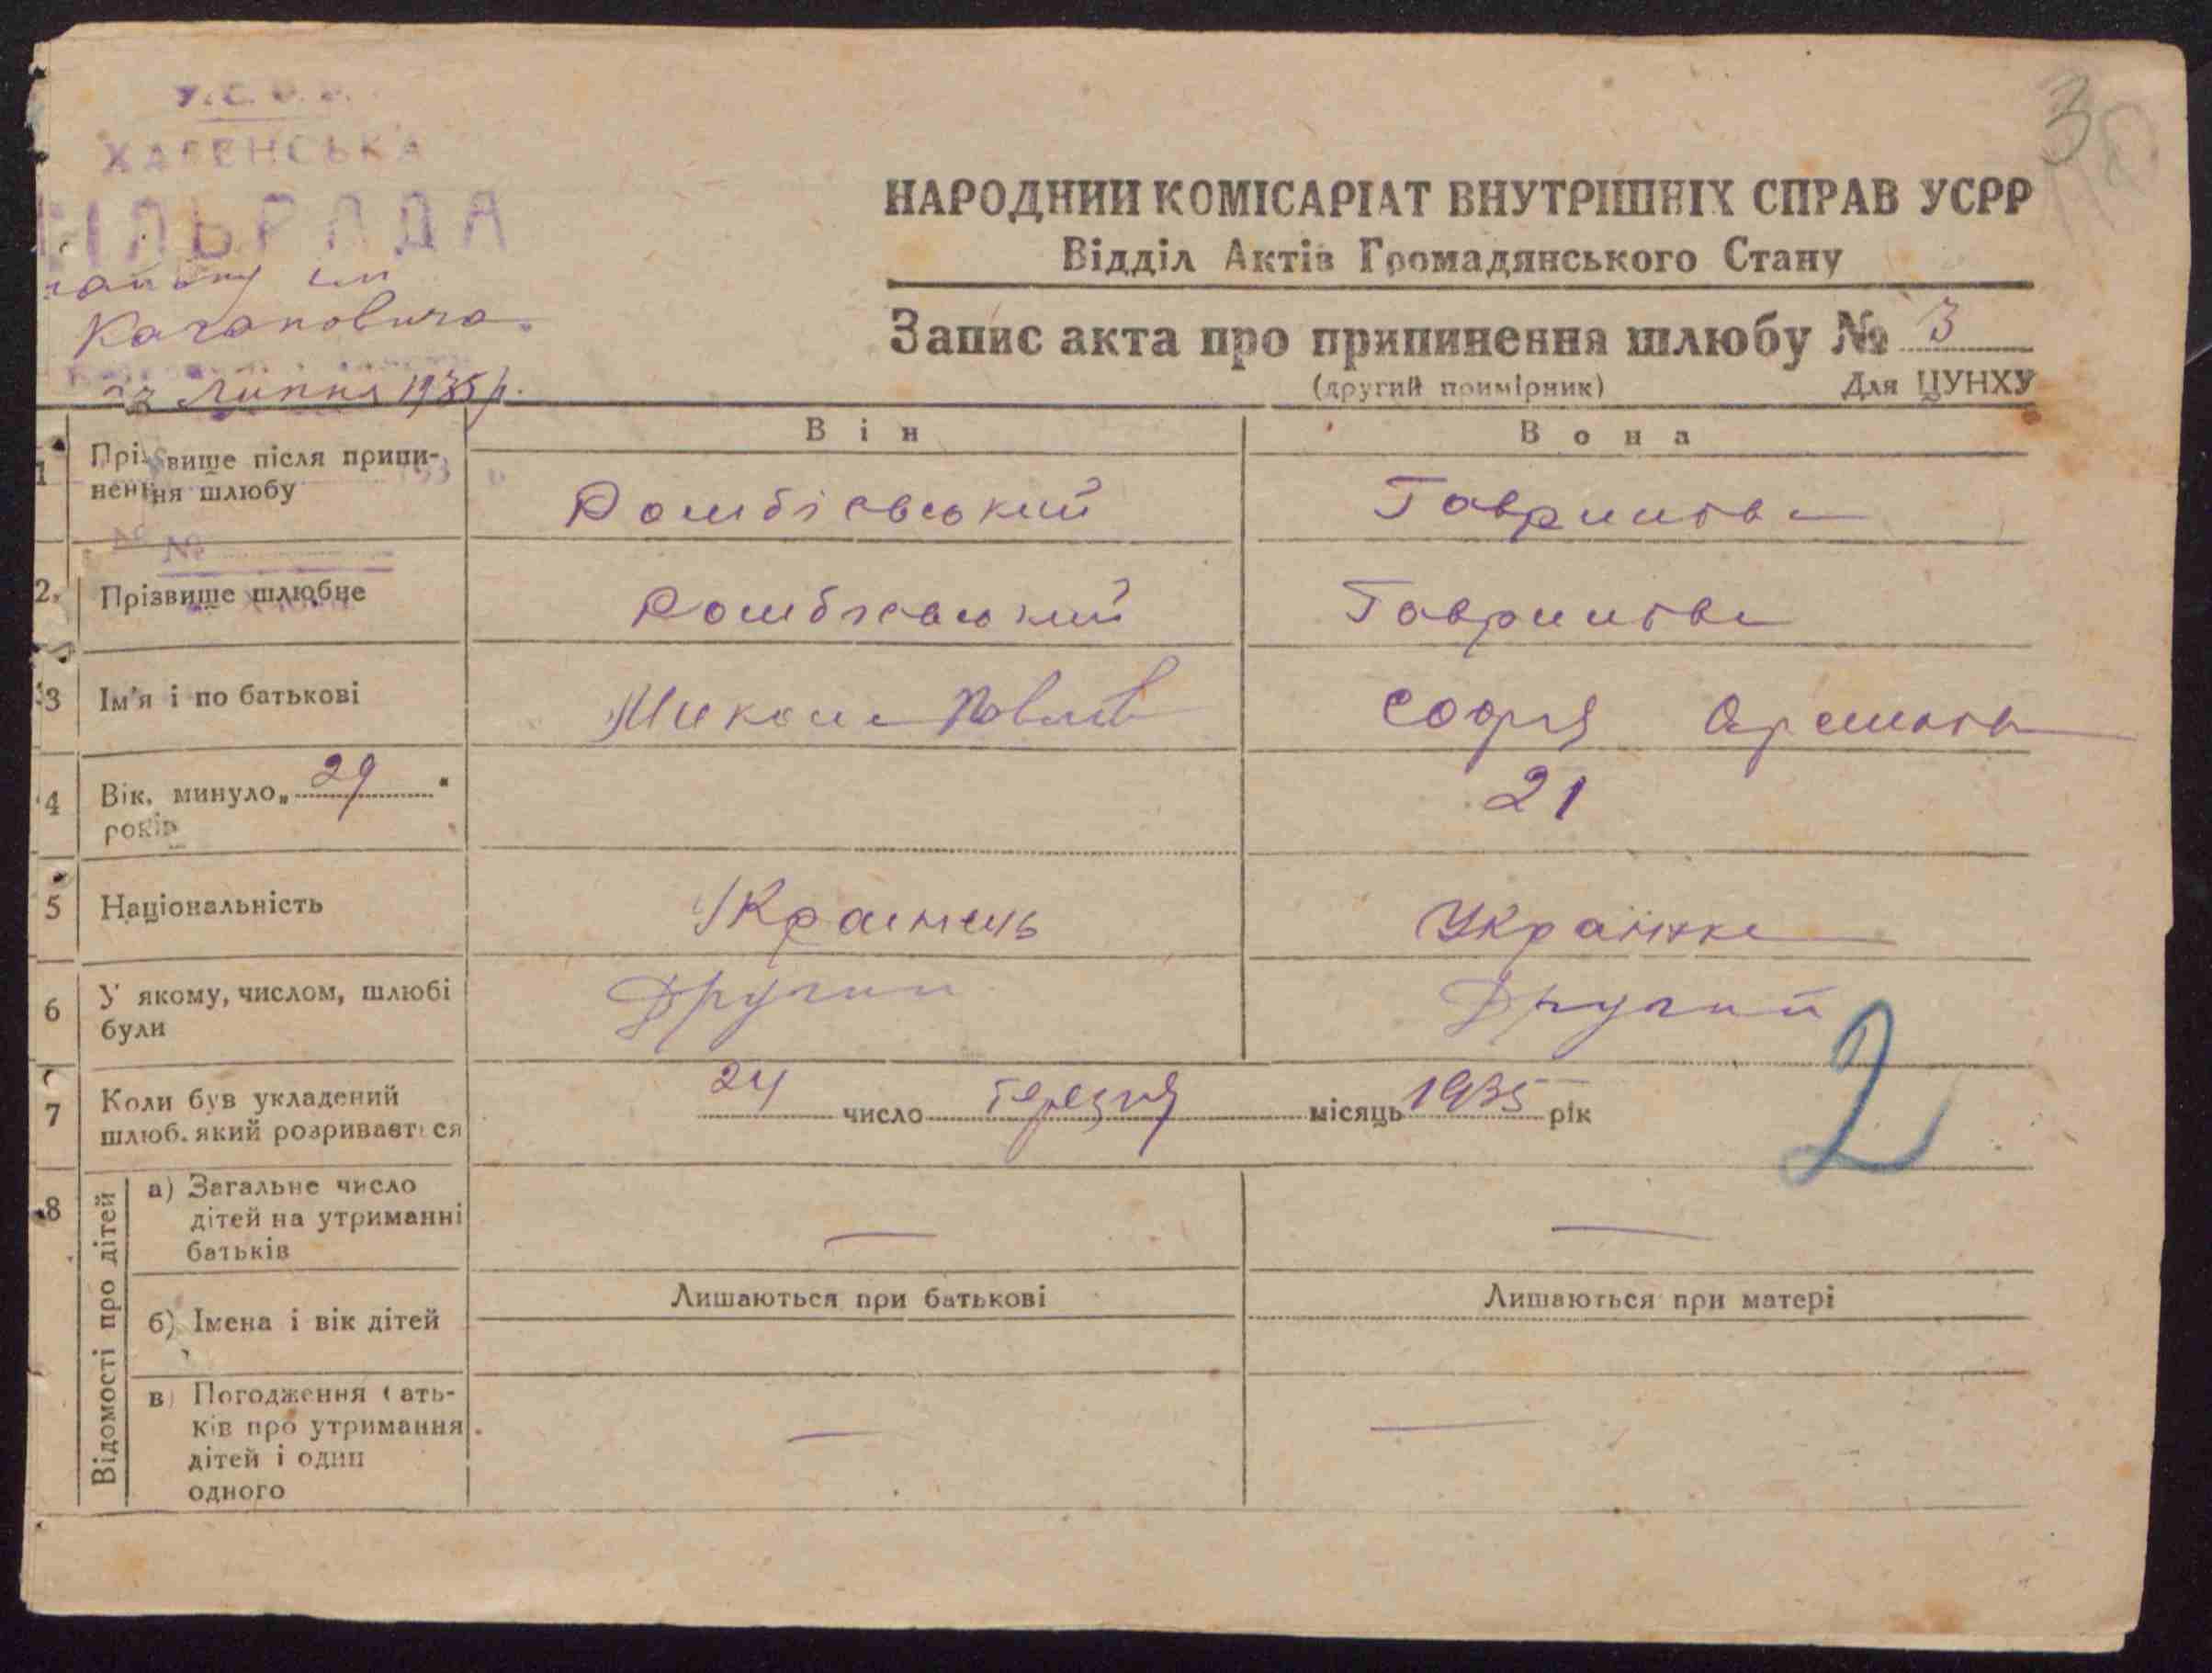 У.С.
ХАГЕНСЬКА
ІЛЬРАДА
району ім
Кагановича.
22 Липня 1935 р.
3
НАРОДНИЙ КОМІСАРІАТ ВНУТРІШНІХ СПРАВ УСРР
Відділ Актів Громадянського Стану
Запис акта про припинення шлюбу № 3
(другий примірник) Для ЦУНХУ
Він Вона
1 Прізвище після припи-
нення шлюбу
Гаврилова
№ №
2. Прізвище шлюбне
Гаврилова
3 Ім'я і по батькові Микола Павлов Софія
4 Вік, минуло „ 29 “
років
21
5 Національність Українець Українка
6 У якому, числом, шлюбі
були
Другий Другий
7 Коли був укладений
шлюб, який розривається
24 число березня місяць 1935 рік
2
8 Відомості про дітей
а) Загальне число
дітей на утриманні
батьків
— —
Лишаються при батькові Лишаються при матері
б) Імена і вік дітей
в) Погодження бать-
ків про утримання
дітей і один
одного
— —